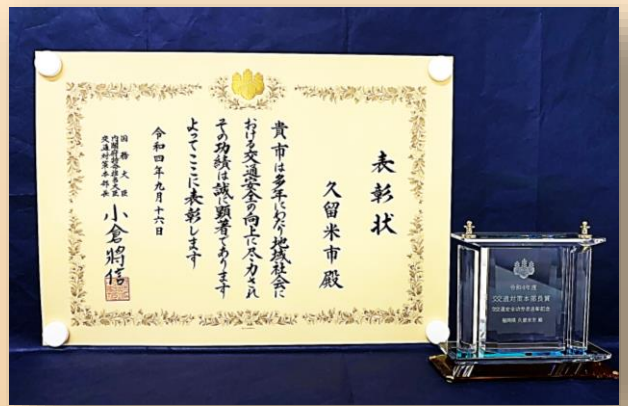 表彰状
久留米市殿
貴市は多年にわたり地域社会に
おける交通安全の向上に尽力され
その功績は誠に顕著であります
よってここに表彰します
令和四年九月十六日
国務大臣
内閣府特命担当大臣
交通対策本部長
小倉將信
令和4年度
交通対策本部長賞
福岡県 久留米市 殿